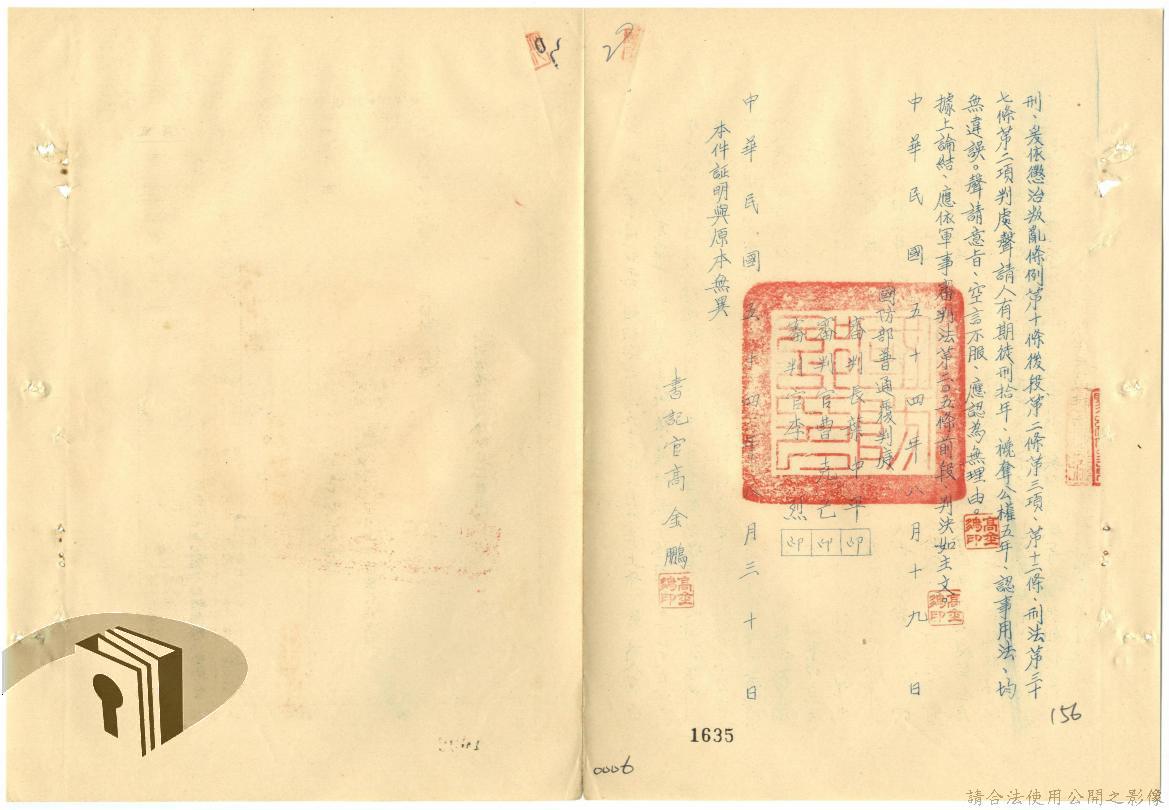 刑、爰依懲治叛亂條例第十條後段第二條第三項、第十二條、刑法第三十
七條第二項判處聲請人有期徒刑拾年、褫奪公權五年、認事用法、均
無違誤。聲請意旨、空言不服、應認為無理由。
據上論結、應依軍事審判法第二〇五條前段、判決如主文。
中華民國五十四年八月十九日
國防部普通覆判庭
審判長葉中平 印
審判官曹克仁 印
審判官李烈 印
中華民國五十四年八月三十日
本件証明與原本無異
書記官高金鵬
高金鵬印
高金鵬印
高金鵬印
156
1635
0006
請合法使用公開之影像